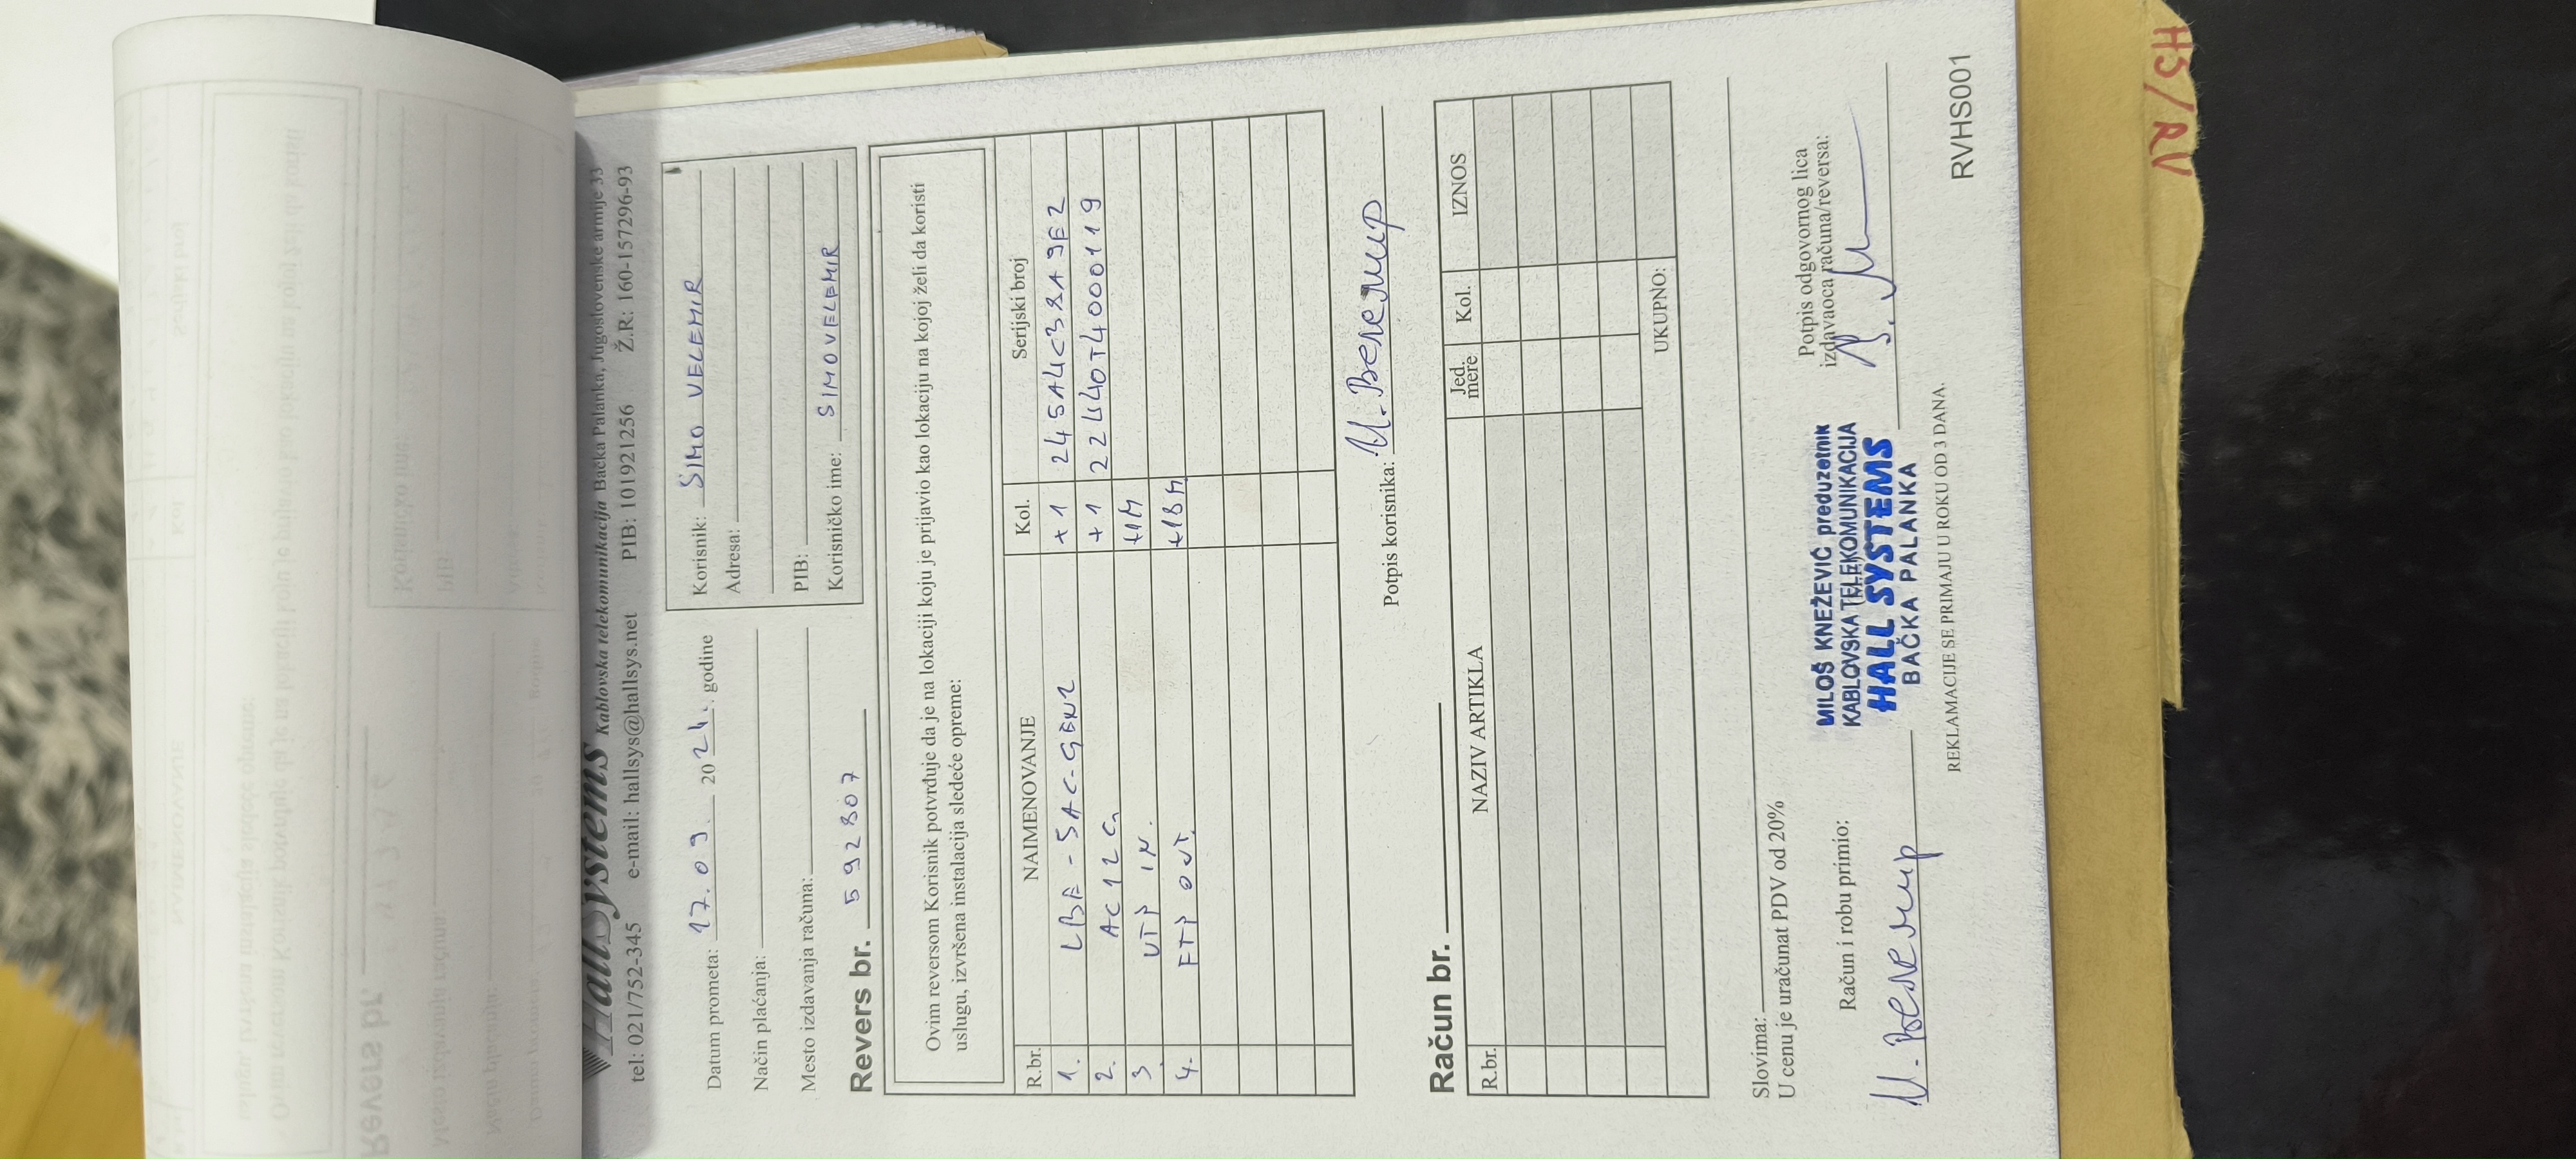 HallSystems Kablovska telekomunikacija Bačka Palanka, Jugoslovenske armije 33
tel: 021/752-345 e-mail: hallsys@hallsys.net PIB: 101921256 Ž.R: 160-157296-93
Datum prometa: 17.09. 2024. godine
Način plaćanja:
Mesto izdavanja računa:
Korisnik: SIMO VELEMIR
Adresa:
PIB:
Korisničko ime: SIMOVELEMIR
Revers br. 592807
Ovim reversom Korisnik potvrđuje da je na lokaciji koju je prijavio kao lokaciju na kojoj želi da koristi
uslugu, izvršena instalacija sledeće opreme:
R.br. NAIMENOVANJE Kol. Serijski broj
1. LBE-5AC-GEN2 +1 245A4C3AA9E2
2. AC12G +1 22440T4000119
3. UTP IN.
4. FTP OUT. +18M
Potpis korisnika: И. Велемир
Račun br.
R.br. NAZIV ARTIKLA Jed. mere Kol. IZNOS
UKUPNO:
Slovima:
U cenu je uračunat PDV od 20%
Račun i robu primio:
И. Велемир
MILOŠ KNEŽEVIĆ preduzetnik
KABLOVSKA TELEKOMUNIKACIJA
HALL SYSTEMS
BAČKA PALANKA
Potpis odgovornog lica
izdavaoca računa/reversa:
REKLAMACIJE SE PRIMAJU U ROKU OD 3 DANA.
RVHS001
HS/RV